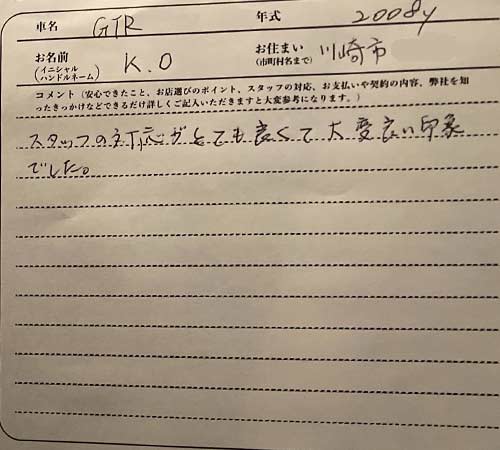 車名 GTR 年式 2008y
お名前 (イニシャル ハンドルネーム) K.O お住まい (市町村名まで) 川崎市
コメント（安心できたこと、お店選びのポイント、スタッフの対応、お支払いや契約の内容、弊社を知
ったきっかけなどできるだけ詳しくご記入いただきますと大変参考になります。）
スタッフの対応がとても良くて大変良い印象
でした。